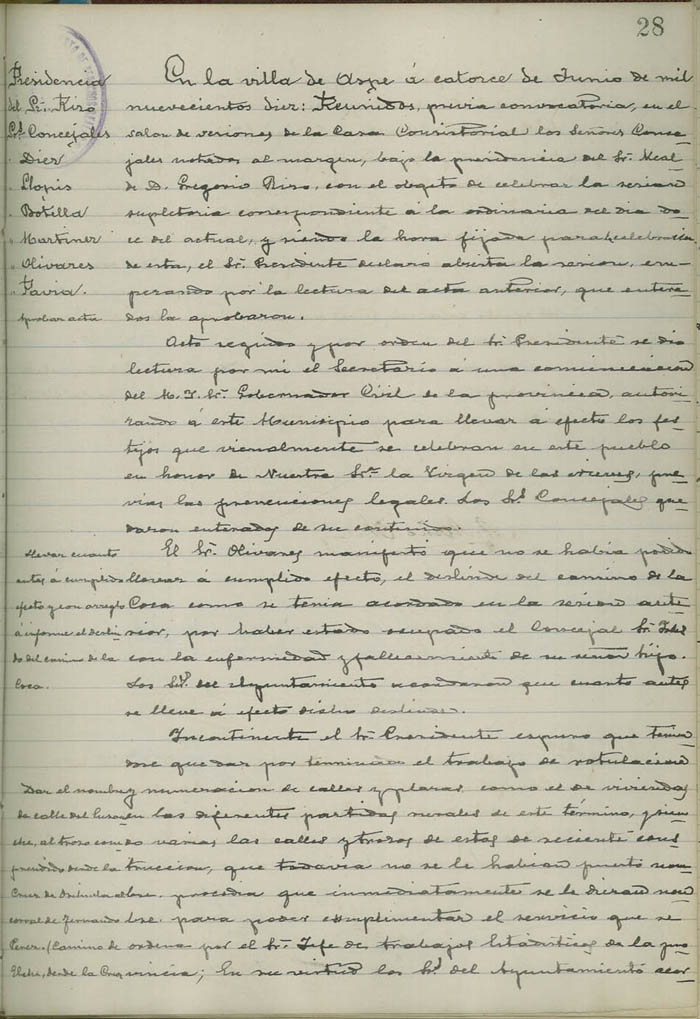 28
Presidencia
del Sr. Rizo
Srs. Concejales
Diez
Llopis
Botella
" Martinez
" Olivares
" Pavia.
Aprobar acta
En la villa de Aspe á catorce de Junio de mil
nuevecientos diez: Reunidos, previa convocatoria, en el
salon de sesiones de la Casa Consistorial los Señores Conce-
jales notados al margen, bajo la presidencia del Sr. Alcal-
de D. Gregorio Rizo, con el objeto de celebrar la sesion
supletoria correspondiente á la ordinaria del dia do-
ce del actual, y siendo la hora fijada para la celebracion
de esta, el Sr. Presidente declaró abierta la sesion, em-
pezando por la lectura del acta anterior, que entera-
dos la aprobaron.
Acto seguido y por orden del Sr. Presidente se dió
lectura por mi el Secretario á una comunicacion
del M. I. Sr. Gobernador Civil de la provincia, autori-
zando á este Municipio para llevar á efecto los fes-
tejos que vienalmente se celebran en este pueblo
en honor de Nuestra Sra. la Virgen de las Nieves, pre-
vias las prevenciones legales. Los Srs. Concejales que-
daron enterados de su contenido.
Llevar cuanto
antes á cumplido
efecto y con arreglo
á informe el deslin-
do del camino de la
Coca.
El Sr. Olivares manifestó que no se habia podido
llevar á cumplido efecto, el deslinde del camino de la
Coca como se tenia acordado en la sesion ante-
rior, por haber estado ocupado el Concejal Sr.
con la enfermedad y fallecimiento de su señor hijo.
Los Srs. del Ayuntamiento acordaron que cuanto antes
se lleve á efecto dicho deslinde.
Incontinente el Sr. Presidente expuso que tenien-
dose que dar por terminado el trabajo de rotulacion
y numeracion de calles y plazas como el de viviendas
en las diferentes partidas rurales de este término, y sien-
do varias las calles y trozos de estas de reciente cons-
truccion, que todavia no se le habian puesto nom-
bre, procedia que inmediatamente se le dieran nom-
bre para poder cumplimentar el servicio que se
ordena por el Sr. Jefe de trabajos Estadisticos de la pro-
vincia; En su virtud los Srs. del Ayuntamiento acor-
Dar el nombre
de calle del
che, al trozo com-
prendido desde la
Cruz de
corral de Fernando
Perez. (Camino de
Elche, desde la Cruz